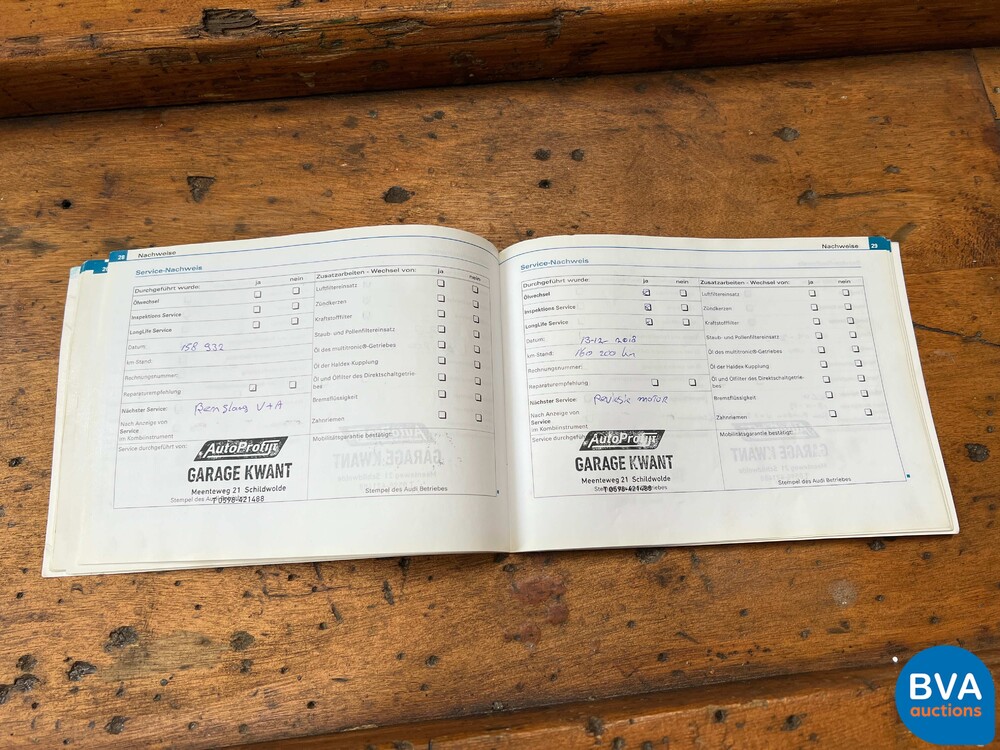 28 Nachweise
Service-Nachweis
Durchgeführt wurde: ja nein
Ölwechsel
Inspektions Service
LongLife Service
Datum: 158 932
km-Stand:
Rechnungsnummer:
Reparaturempfehlung
Nächster Service: V+A
Nach Anzeige von
Service
im Kombiinstrument
Service durchgeführt von:
AutoProfijt
GARAGE KWANT
Meenteweg 21 Schildwolde
T 0598-421488
Zusatzarbeiten - Wechsel von: ja nein
Luftfiltereinsatz
Zündkerzen
Kraftstofffilter
Staub- und Pollenfiltereinsatz
Öl des multitronic®-Getriebes
Öl der Haldex Kupplung
Öl und Ölfilter des Direktschaltgetrie-
bes
Bremsflüssigkeit
Zahnriemen
Mobilitätsgarantie bestätigt:
Stempel des Audi Betriebes
Nachweise 29
Service-Nachweis
Durchgeführt wurde: ja nein
Ölwechsel
Inspektions Service
LongLife Service
Datum: 13-12 2018
km-Stand: 160 200 km
Rechnungsnummer:
Reparaturempfehlung
Nächster Service: Revisie motor
Nach Anzeige von
Service
im Kombiinstrument
Service durchgeführt
AutoProfijt
GARAGE KWANT
Meenteweg 21 Schildwolde
T 0598-421488
Zusatzarbeiten - Wechsel von: ja nein
Luftfiltereinsatz
Zündkerzen
Kraftstofffilter
Staub- und Pollenfiltereinsatz
Öl des multitronic®-Getriebes
Öl der Haldex Kupplung
Öl und Ölfilter des Direktschaltgetrie-
bes
Bremsflüssigkeit
Zahnriemen
Mobilitätsgarantie bestätigt:
Stempel des Audi Betriebes
BVA
auctions